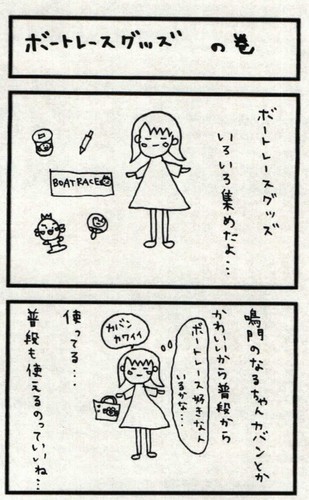 ボートレースグッズ の巻
ボートレースグッズ
いろいろ集めたよ…
BOATRACE
鳴門のなるちゃんカバンとか
かわいいから普段から
使ってる…
ボートレース好きな人
いるかな…
カバン
カワイイ
普段も使えるのっていいね…